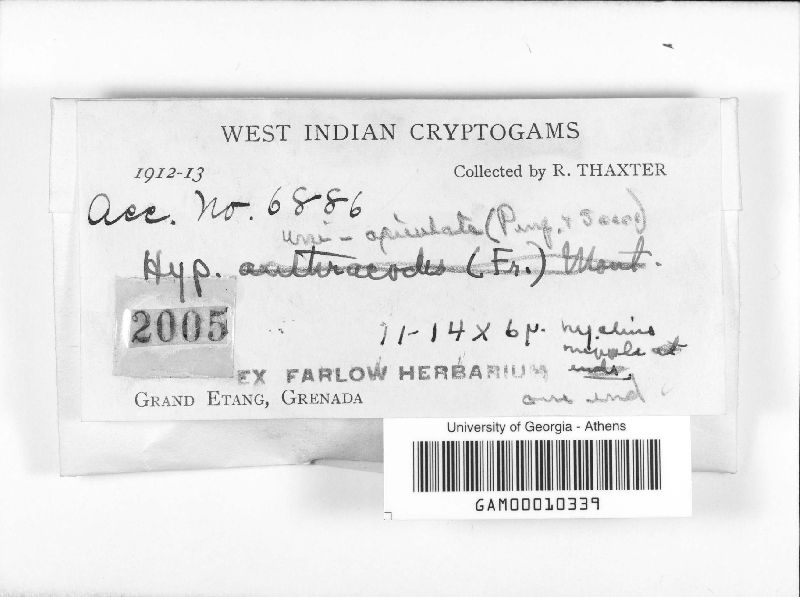 WEST INDIAN CRYPTOGAMS
1912-13 Collected by R. THAXTER
Acc. No. 6886
uni-apiculata (Penz. & Sacc)
Hyp. anthracodes (Fr.) Mont.
2005
11-14 X 6μ. hyaline
at
ends.
EX FARLOW HERBARIUM
one end
GRAND ETANG, GRENADA
University of Georgia - Athens
GAM00010339